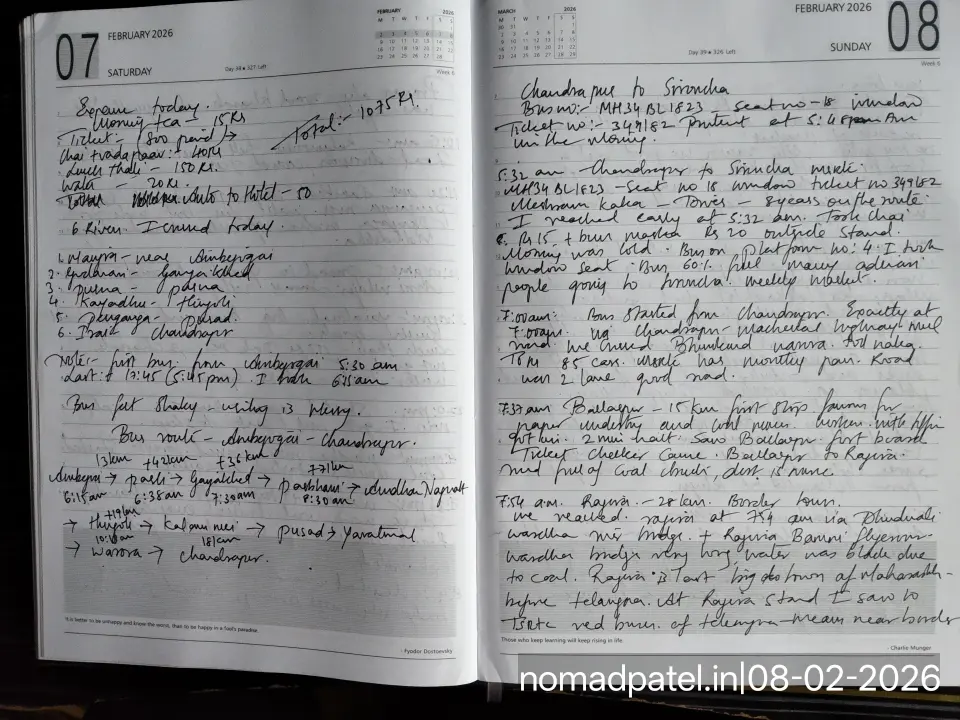 07
FEBRUARY 2026
SATURDAY
Day 38 • 327 Left
Week 6
FEBRUARY 2026
M T W T F S S
Expense today.
Morning tea - 15 Rs
Ticket :- (800 paid)
Chai + vada paav :- 40 Rs
Lunch thali - 150 Rs.
Water - 20 Rs.
Auto to Hotel - 50
Total:- 1075 Rs.
6 River I crossed today.
1. Manjra - near Ambejogai
2. Godavari - Gangakhed
3. Purna - Purna
4. Kayadhu - Hingoli
5. Penganga - Pusad.
6. Irai - Chandrapur
Note:- first bus from Ambejogai 5:30 am
Last :- 17:45 (5:45 pm). I took 6:15 am
Bus felt shaky - writing is messy.
Bus route - Ambejogai - Chandrapur.
+42km +36 km
→ parli → Gangakhed → parbhani → Aundha Nagnath
6:15am 6:38am 7:30am 8:30am
→ Hingoli → Kalamnuri → pusad → Yavatmal
→ Warora → Chandrapur.
It is better to be unhappy and know the worst, than to be happy in a fool's paradise.
- Fyodor Dostoevsky
MARCH 2026
M T W T F S S
FEBRUARY 2026
SUNDAY
08
Day 39 • 326 Left
Week 6
Chandrapur to Sironcha
Bus no:- MH34 BL1823 - seat no - 18 window
Ticket no:- 349182 at 5:48 Am
in the morning.
5:32 am - Chandrapur to Sironcha
MH34 BL1823 - Seat no 18 window ticket no 349182
Meshram kaka - - 8 years on the route.
I reached early at 5:32 am. Took chai
Rs 15 + bun maska Rs 20 outside stand.
Morning was cold. Bus on platform no: 4. I took
window seat. Bus 60% full many adivasi
people going to Sironcha weekly market.
7:00am: Bus started from Chandrapur. Exactly at
7:00am via Chandrapur - highway
road. We crossed toll naka.
Toll Rs 85 car. has monthly pass. Road
was 2 lane good road.
7:37 am Ballarpur - 15 km first stop famous for
paper industry and coal mines.
2 min halt. Saw Ballarpur first board
Ticket checker came. Ballarpur to Rajura.
road full of coal trucks, dust is more.
7:54 a.m. Rajura - 28 km. Border town.
We reached rajura at 7:54 am via
wardha river bridge. + Rajura
wardha bridge very long, water was black due
to coal. Rajura is last big town of Maharashtra
before telangana. At Rajura stand I saw 10
TSRTC red buses of telangana - means near border
Those who keep learning will keep rising in life.
- Charlie Munger
nomadpatel.in|08-02-2026